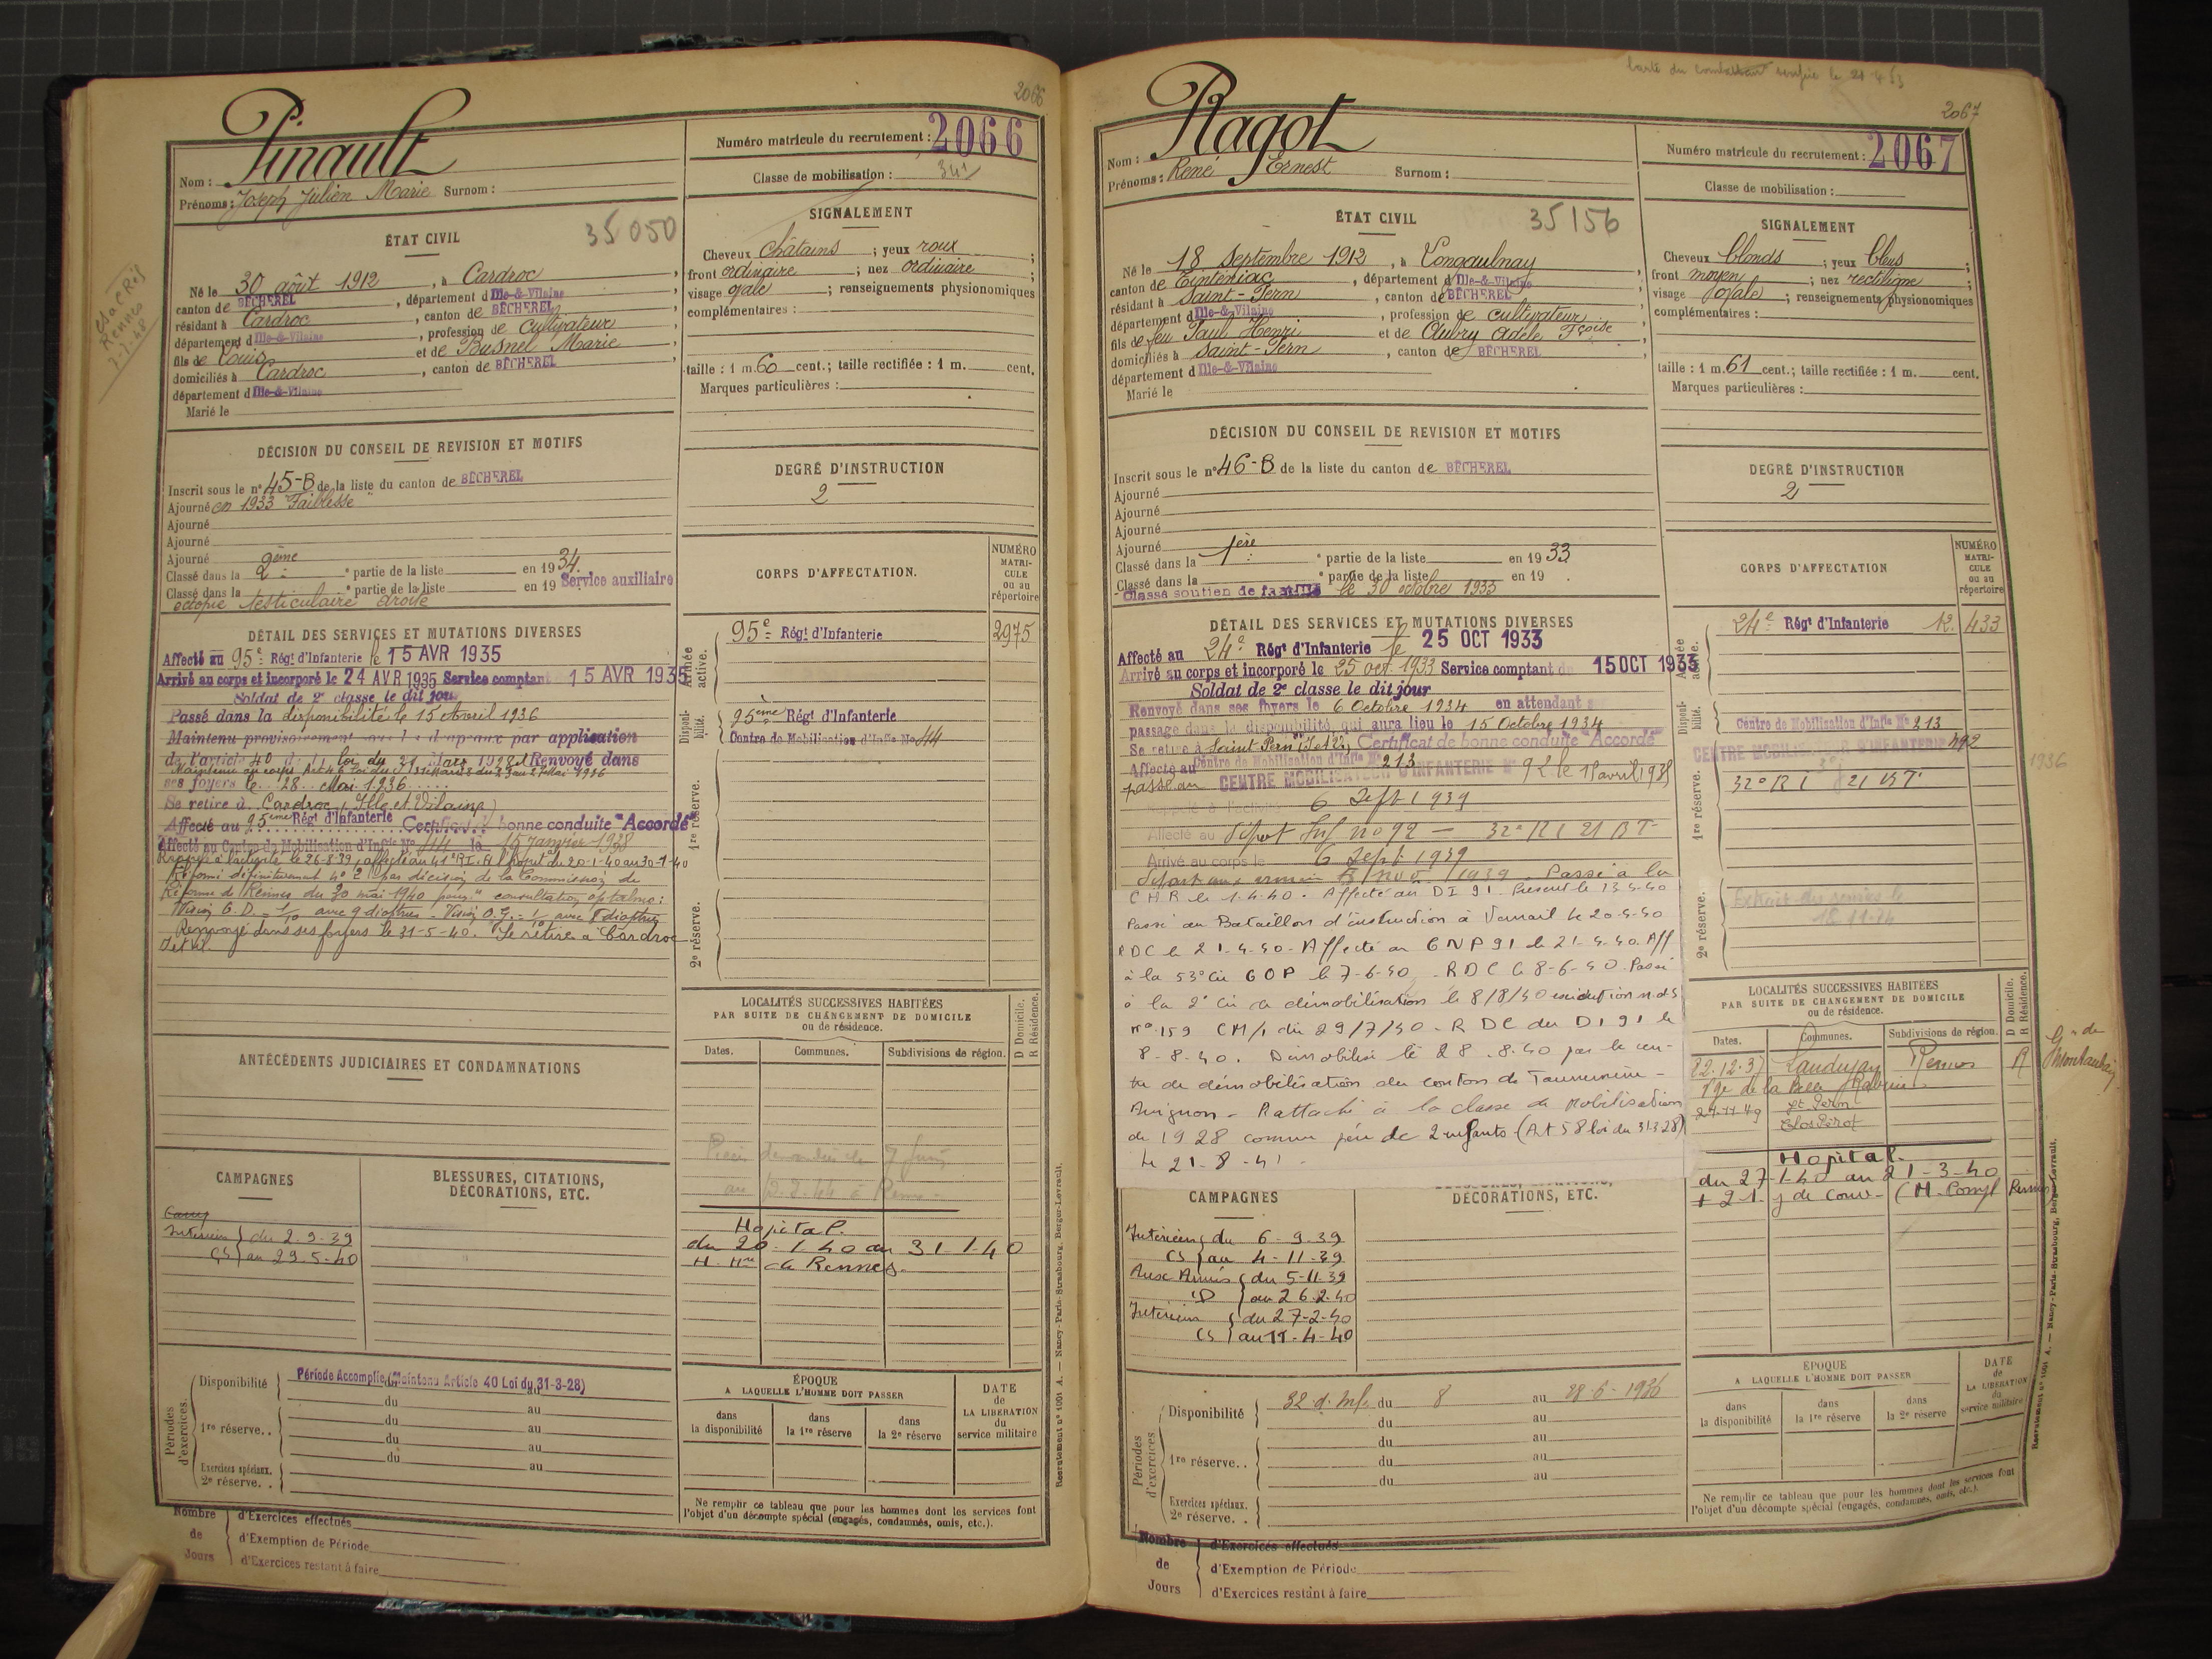 2066
Pinault
Nom :
Prénoms : Joseph Julien Marie Surnom :
Numéro matricule du recrutement : 2066
Classe de mobilisation :
ÉTAT CIVIL
35050
Né le 30 août 1912, à Cardroc,
canton de BÉCHEREL, département d Ille-&-Vilaine
résidant à Cardroc, canton de BÉCHEREL
département d Ille-&-Vilaine, profession de cultivateur
fils de Louis et de Busnel Marie,
domiciliés à Cardroc, canton de BÉCHEREL,
département d Ille-&-Vilaine
Marié le
SIGNALEMENT
Cheveux châtains ; yeux roux ;
front ordinaire ; nez ordinaire
visage ovale ; renseignements physionomiques
complémentaires :
taille : 1 m. 60 cent.; taille rectifiée : 1 m. cent.
Marques particulières :
DÉCISION DU CONSEIL DE REVISION ET MOTIFS
Inscrit sous le n° 45-B de la liste du canton de BÉCHEREL
Ajourné en 1933 "Faiblesse"
Ajourné
Ajourné
Ajourné
Classé dans la 2ème partie de la liste en 1934.
Classé dans la partie de la liste en 19 Service auxiliaire
ectopie testiculaire droite
DEGRÉ D'INSTRUCTION
2
DÉTAIL DES SERVICES ET MUTATIONS DIVERSES
Affecté au 95e Régt d'Infanterie le 15 AVR 1935
Arrivé au corps et incorporé le 24 AVR 1935 Service comptant 15 AVR 1935
Soldat de 2e classe le dit jour
Passé dans la disponibilité le 15 Avril 1936
Maintenu provisoirement sous les drapeaux par application
de l'article 40 de la loi du 31 Mars 1928 Renvoyé dans
ses foyers le 28 Mai 1936
Se retire à Cardroc (Ille et Vilaine)
Affecté au 95ème Régt d'Infanterie Certificat de bonne conduite "Accordé"
Affecté au Centre de Mobilisation d'Infie No 44 le 15 Janvier 1938
Rappelé à l'activité le 26-8-39, affecté au 41e RI. A l'hôpital du 20-1-40 au 30-1-40
Réformé définitivement n° 2 par décision de la Commission de
Réforme de Rennes du 30 mai 1940 pour "consultation optalmo :
Vision O.D. = 1/10 avec 9 dioptries - Vision O.G. = 1/10 avec 8 dioptries
Renvoyé dans ses foyers le 31-5-40. Se retire à Cardroc
CORPS D'AFFECTATION.
NUMÉRO MATRICULE ou au répertoire
Armée active.
95e Régt d'Infanterie 2975
Disponibilité.
95ème Régt d'Infanterie
Centre de Mobilisation d'Infie No 44
1re réserve.
2e réserve.
LOCALITÉS SUCCESSIVES HABITÉES
PAR SUITE DE CHANGEMENT DE DOMICILE
ou de résidence.
Dates. Communes. Subdivisions de région.
D Domicile. R Résidence.
Hopital.
du 20-1-40 au 31-1-40
H. Hre de Rennes.
ANTÉCÉDENTS JUDICIAIRES ET CONDAMNATIONS
CAMPAGNES
BLESSURES, CITATIONS,
DÉCORATIONS, ETC.
Camp
Intérieur du 2-9-39
CS au 29-5-40
Périodes d'exercices.
Disponibilité Période Accomplie (Maintenu Article 40 Loi du 31-3-28)
du au
1re réserve.. du au
du au
du au
Exercices spéciaux.
2e réserve. .
ÉPOQUE
A LAQUELLE L'HOMME DOIT PASSER
dans la disponibilité
dans la 1re réserve
dans la 2e réserve
DATE de LA LIBÉRATION du service militaire
Ne remplir ce tableau que pour les hommes dont les services font
l'objet d'un décompte spécial (engagés, condamnés, omis, etc.).
Nombre de Jours
d'Exercices effectués
d'Exemption de Période
d'Exercices restant à faire
Recrutement n° 1001 A. — Nancy-Paris-Strasbourg, Berger-Levrault.
2067
Ragot
Nom :
Prénoms : René Ernest Surnom :
Numéro matricule du recrutement : 2067
Classe de mobilisation :
ÉTAT CIVIL
35156
Né le 18 Septembre 1912, à Longaulnay
canton de Tinténiac, département d Ille-&-Vilaine
résidant à Saint-Pern, canton de BÉCHEREL
département d Ille-&-Vilaine, profession de cultivateur
fils de feu Paul Henri et de Aubry Adèle Fçoise,
domiciliés à Saint-Pern, canton de BÉCHEREL
département d Ille-&-Vilaine
Marié le
SIGNALEMENT
Cheveux blonds ; yeux bleus ;
front moyen ; nez rectiligne
visage ovale ; renseignements physionomiques
complémentaires :
taille : 1 m. 61 cent.; taille rectifiée : 1 m. cent.
Marques particulières :
DÉCISION DU CONSEIL DE REVISION ET MOTIFS
Inscrit sous le n° 46-B de la liste du canton de BÉCHEREL
Ajourné
Ajourné
Ajourné
Ajourné
Classé dans la 1ère partie de la liste en 1933
Classé dans la partie de la liste en 19 .
Classé soutien de famille le 30 octobre 1933
DEGRÉ D'INSTRUCTION
2
DÉTAIL DES SERVICES ET MUTATIONS DIVERSES
Affecté au 24e Régt d'Infanterie le 25 OCT 1933
Arrivé au corps et incorporé le 25 oct. 1933 Service comptant de 15 OCT 1933
Soldat de 2e classe le dit jour
Renvoyé dans ses foyers le 6 Octobre 1934 en attendant s
passage dans la disponibilité, qui aura lieu le 15 Octobre 1934
Se retire à Saint Pern (I.&V.) Certificat de bonne conduite "Accordé"
Affecté au Centre de Mobilisation d'Infie No 213
passé au CENTRE MOBILISATEUR D'INFANTERIE N° 92 le 15 avril 1935
Rappelé à l'activité 6 Sept 1939
Affecté au Dépot Inf no 92 — 32e RI 21 BT
Arrivé au corps le 6 Sept 1939
Départ aux armées 5 nov 1939. Passé à la
CHR le 1.4.40. Affecté au DI 91. Présent le 13.4.40
Passé au Bataillon d'instruction à Vernail le 20-4-40
RDC le 21.4.40. Affecté au GNP 91 le 21-4.40. Aff
à la 53e Cie GOP le 7-6-40. RDC le 8-6-40. Passé
à la 2e Cie de démobilisation le 8/8/40
n° 159 CM/1 du 29/7/40. R DC du DI 91 le
8-8-40. Démobilisé le 28.8.40 par le cen-
tre de démobilisation du canton de
Avignon - Rattaché à la classe de Mobilisation
de 1928 comme père de 2 enfants (Art 58 loi du 31.3.28)
le 21-8-41.
CORPS D'AFFECTATION
NUMÉRO MATRICULE ou au répertoire
Armée active.
24e Régt d'Infanterie 12. 433
Disponibilité.
Centre de Mobilisation d'Infie No 213
CENTRE MOBILISATEUR D'INFANTERIE N° 92
1936
1re réserve.
32e RI 21 BT
2e réserve.
LOCALITÉS SUCCESSIVES HABITÉES
PAR SUITE DE CHANGEMENT DE DOMICILE
ou de résidence.
Dates. Communes. Subdivisions de région.
D Domicile. R Résidence.
22.12.37 Landujan Rennes R
24-11-49 St Pern
Clos Pérot
Hopital.
du 27-1-40 au 21-3-40
+ 21 j de conv-
CAMPAGNES
DÉCORATIONS, ETC.
Intérieur du 6-9-39
CS au 4-11-39
Aux Armées du 5-11-39
au 26.2.40
Intérieur du 27-2-40
CS au 11-4-40
Périodes d'exercices
Disponibilité 32 d. Inf. du 8 au 28-6-1936
du au
1re réserve.. du au
du au
du au
Exercices spéciaux.
2e réserve. .
ÉPOQUE
A LAQUELLE L'HOMME DOIT PASSER
dans la disponibilité
dans la 1re réserve
dans la 2e réserve
DATE de LA LIBÉRATION du service militaire
Ne remplir ce tableau que pour les hommes dont les services font
l'objet d'un décompte spécial (engagés, condamnés, omis, etc.).
Nombre de Jours
d'Exercices effectués
d'Exemption de Période
d'Exercices restant à faire
Recrutement n° 1001 A. — Nancy-Paris-Strasbourg, Berger-Levrault.